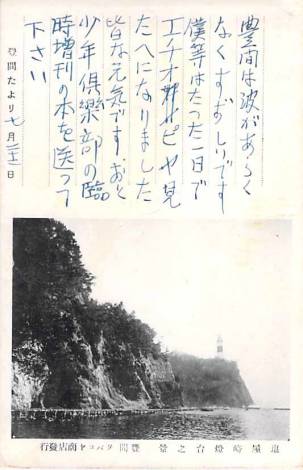 豊間は波があらく
なくすずしいです
僕等はたった一日で
エチオピヤ見
たへになりました
皆な元気です おと
少年倶楽部の臨
時増刊の本を送って
下さい
豊間たより 七月二十二日
塩屋崎燈台之景 豊間タバコヤ商店発行